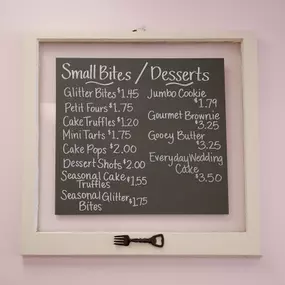 Small Bites / Desserts
Glitter Bites $1.45
Petit Fours $1.75
Cake Truffles $1.20
Mini Tarts $1.75
Cake Pops $2.00
Dessert Shots $2.00
Seasonal Cake $1.55
Truffles
Seasonal Glitter $1.75
Bites
Jumbo Cookie
$1.79
Gourmet Brownie
$3.25
Gooey Butter
$3.25
Everyday Wedding
Cake
$3.50